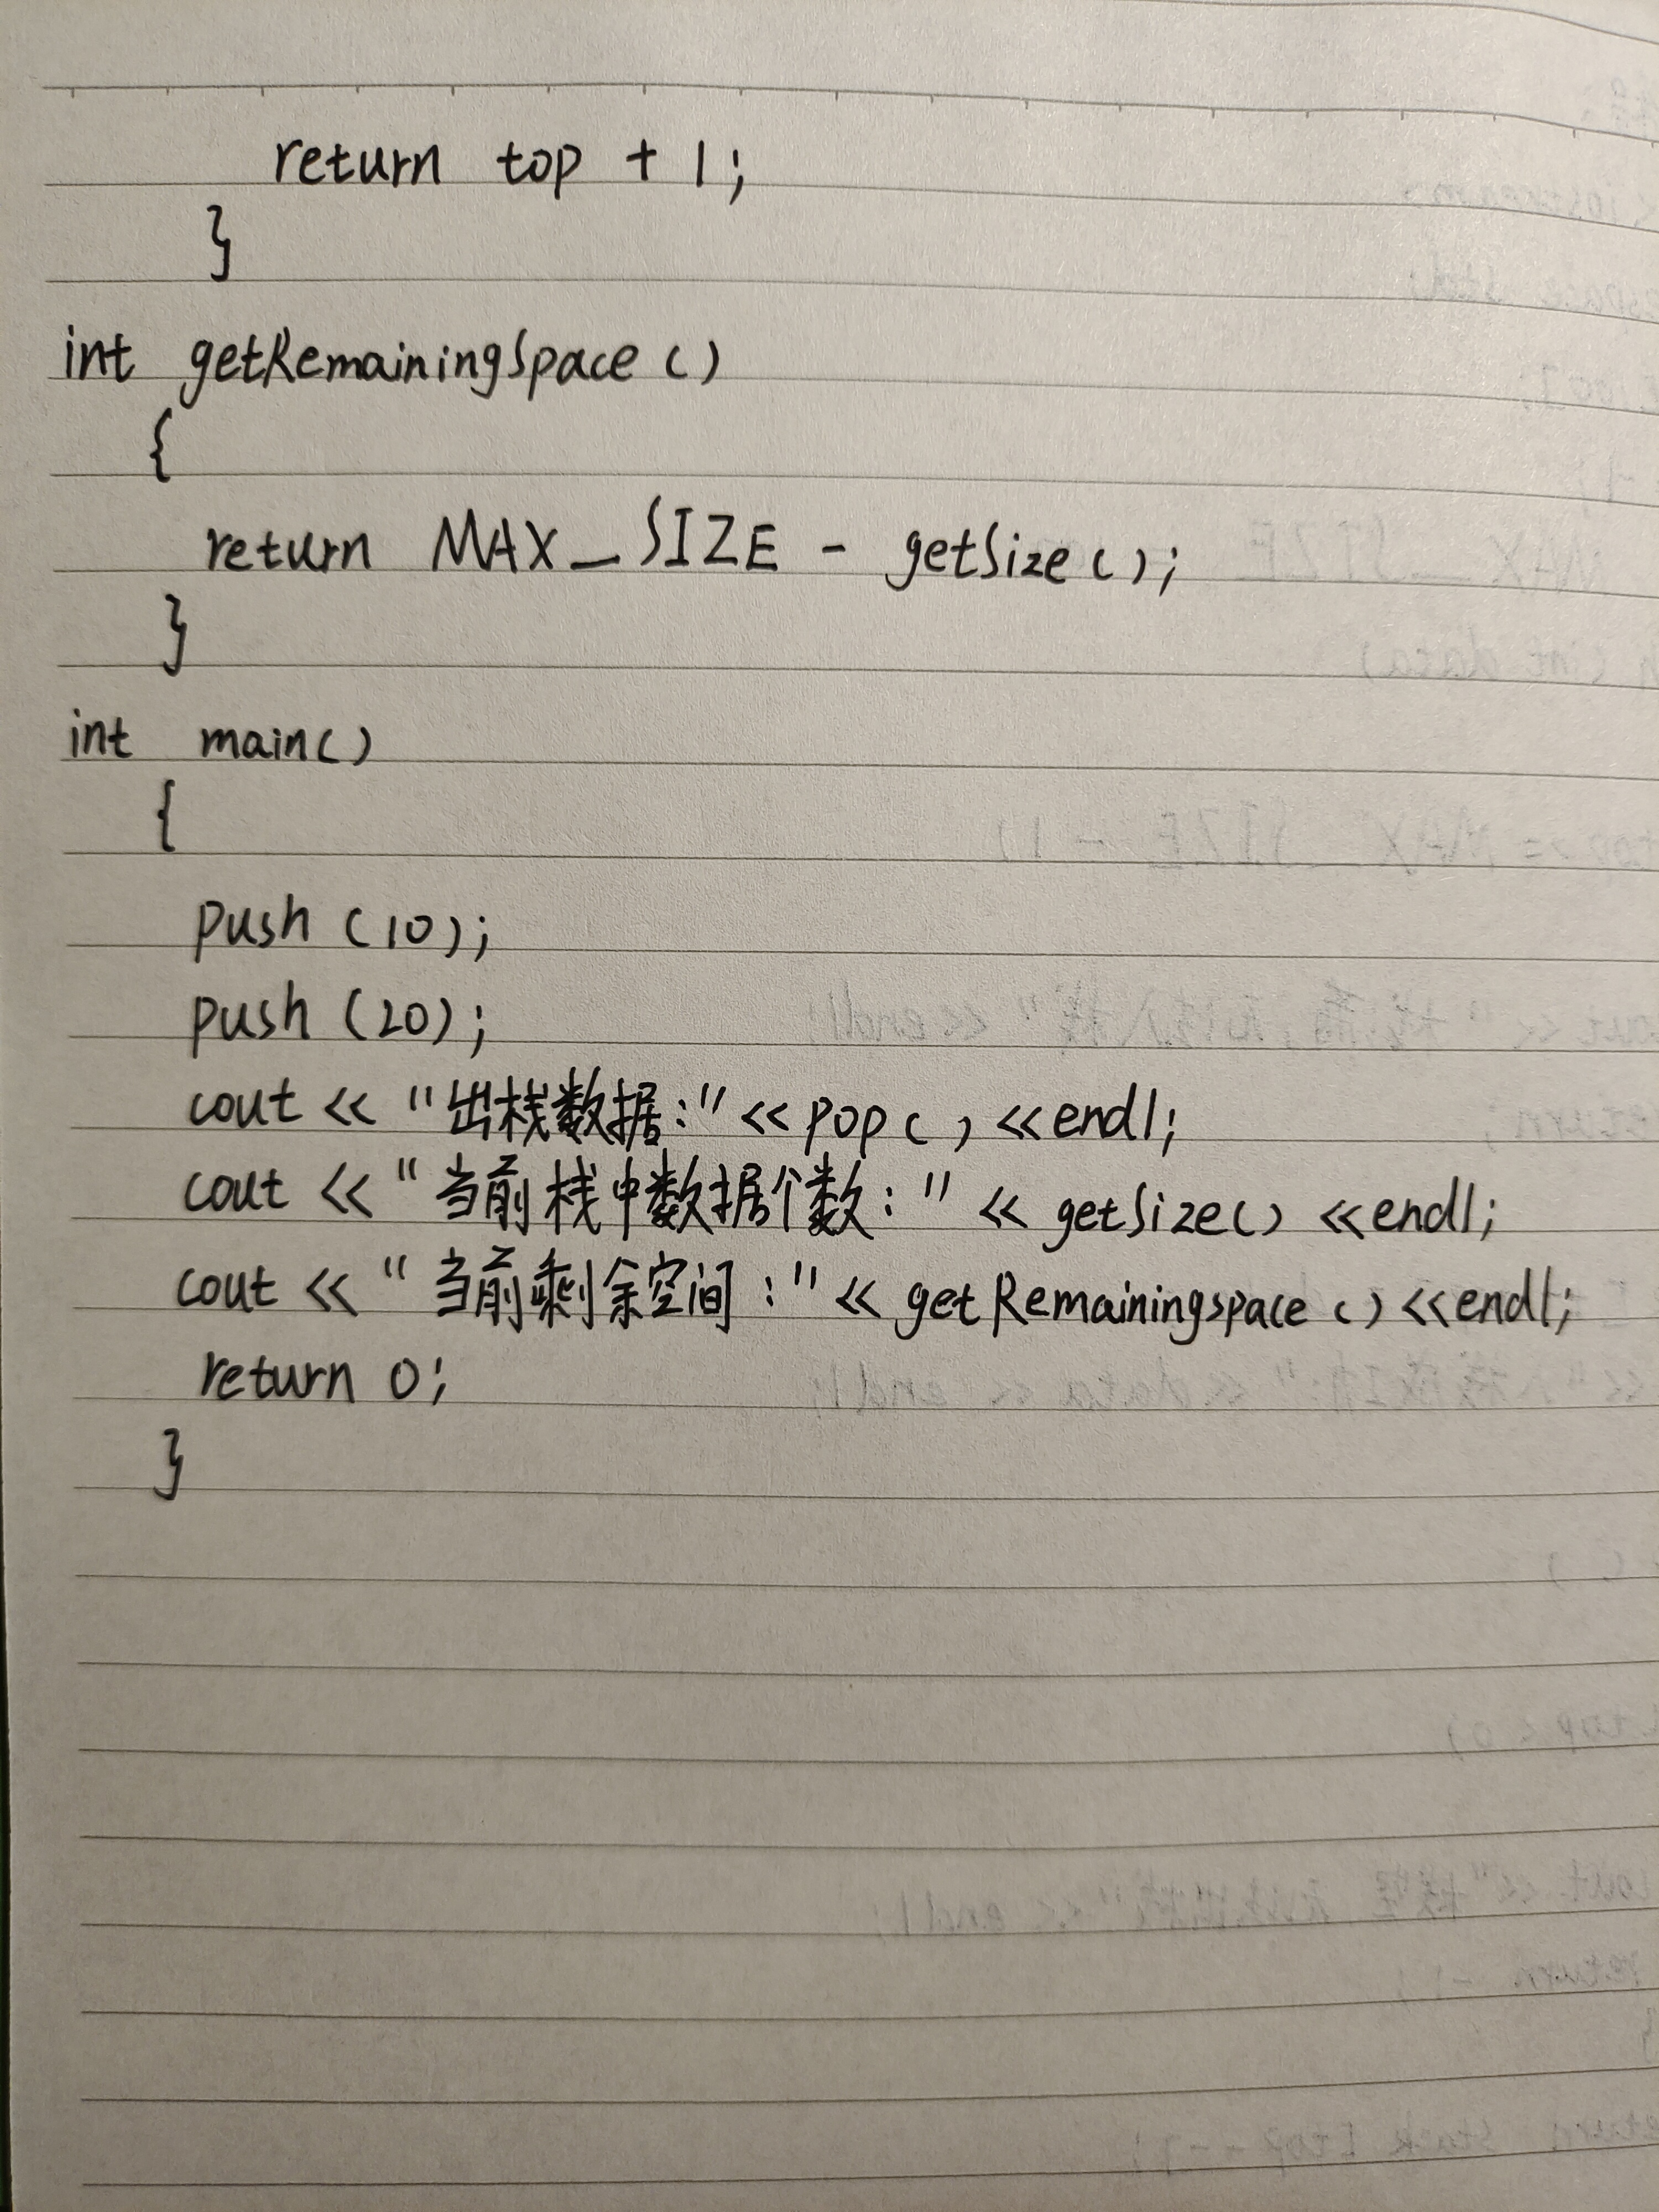 return top + 1;
}
int getRemainingSpace()
{
return MAX_SIZE - getSize();
}
int main()
{
push(10);
push(20);
cout << "出栈数据:" << pop() <<endl;
cout << "当前栈中数据个数:" << getSize() <<endl;
cout << "当前剩余空间:" << getRemainingspace() <<endl;
return 0;
}